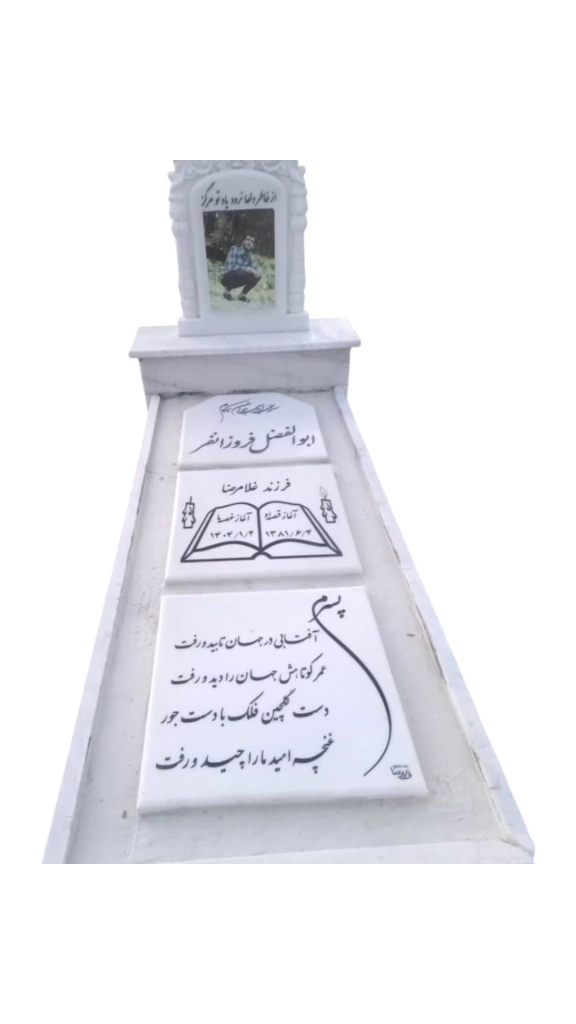 از خاطر دلها نرود یاد تو هرگز
ابوالفضل فروزانفر
فرزند غلامرضا
آغاز قصه‌ات آغاز غصه‌ما
۱۳۸۱/۶/۴ ۱۴۰۴/۱/۲
پسرم
آفتابی در جهان تابید و رفت
عمر کوتاهش جهان را دید و رفت
دست گلچین فلک با دست جور
غنچه امید ما را چید و رفت